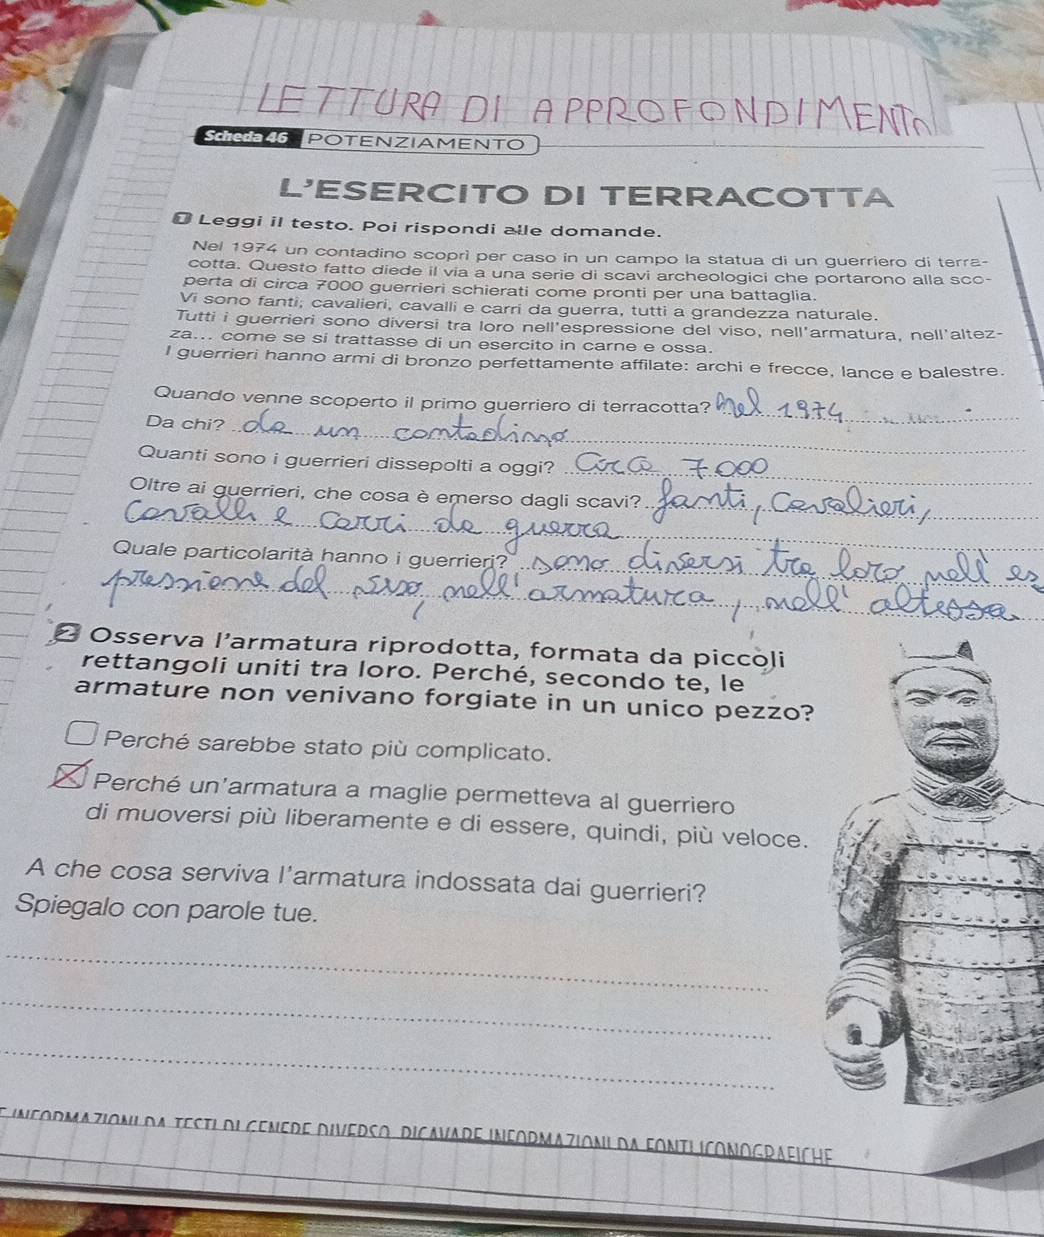 LETTURA DI APPROFONDIMENTO
Scheda 46 POTENZIAMENTO
L'ESERCITO DI TERRACOTTA
1 Leggi il testo. Poi rispondi alle domande.
Nel 1974 un contadino scoprì per caso in un campo la statua di un guerriero di terra-
cotta. Questo fatto diede il via a una serie di scavi archeologici che portarono alla sco-
perta di circa 7000 guerrieri schierati come pronti per una battaglia.
Vi sono fanti, cavalieri, cavalli e carri da guerra, tutti a grandezza naturale.
Tutti i guerrieri sono diversi tra loro nell'espressione del viso, nell'armatura, nell'altez-
za... come se si trattasse di un esercito in carne e ossa.
I guerrieri hanno armi di bronzo perfettamente affilate: archi e frecce, lance e balestre.
Quando venne scoperto il primo guerriero di terracotta? Nel 1974
Da chi? da un contadino
Quanti sono i guerrieri dissepolti a oggi? Circa 7000
Oltre ai guerrieri, che cosa è emerso dagli scavi? fanti, Cavalieri,
Cavalli e carri da guerra
Quale particolarità hanno i guerrieri? sono diversi tra loro nell'es
pressione del viso, nell'armatura, nell'altezza
2 Osserva l'armatura riprodotta, formata da piccoli
rettangoli uniti tra loro. Perché, secondo te, le
armature non venivano forgiate in un unico pezzo?
Perché sarebbe stato più complicato.
Perché un'armatura a maglie permetteva al guerriero
di muoversi più liberamente e di essere, quindi, più veloce.
A che cosa serviva l'armatura indossata dai guerrieri?
Spiegalo con parole tue.
INFORMAZIONI DA TESTI DI GENERE DIVERSO. RICAVARE INFORMAZIONI DA FONTI ICONOGRAFICHE